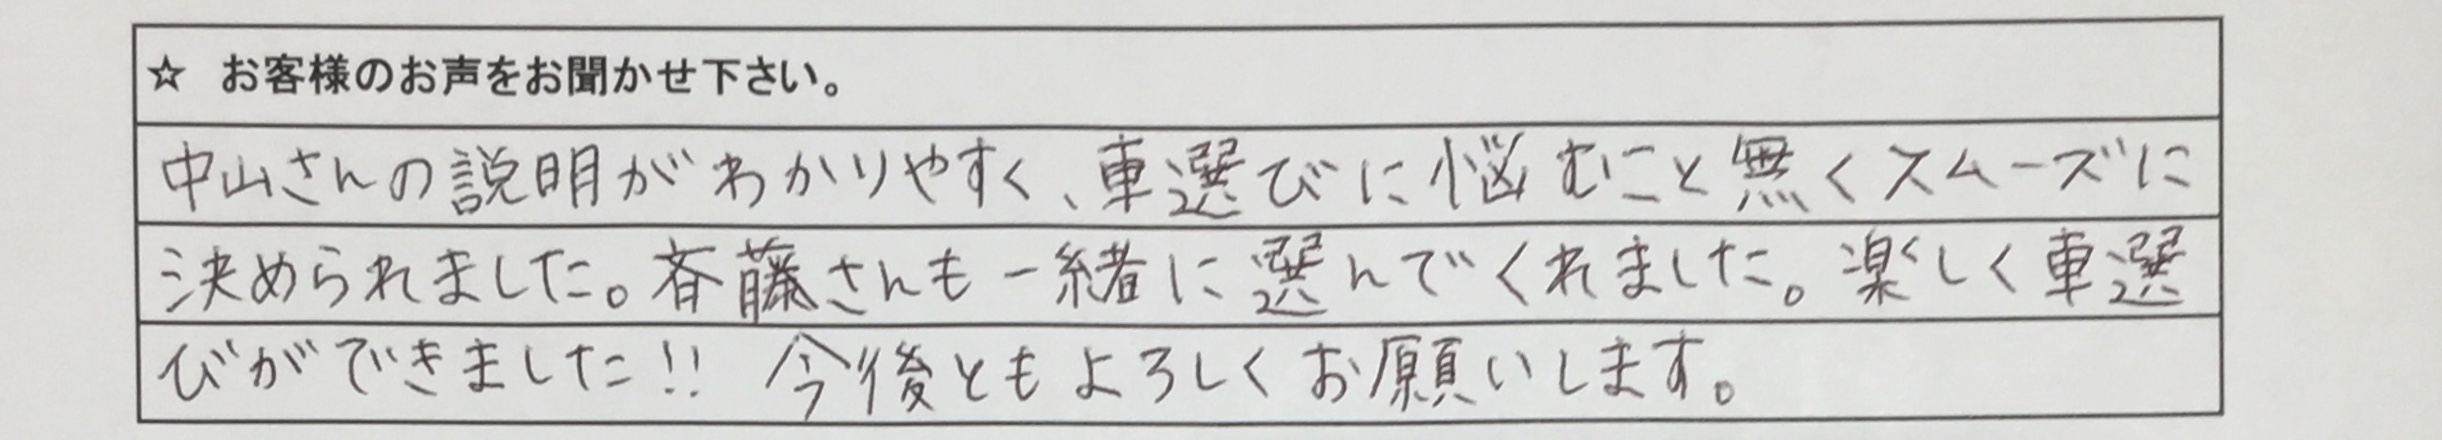 ☆ お客様のお声をお聞かせ下さい。
中山さんの説明がわかりやすく、車選びに悩むこと無くスムーズに
決められました。斉藤さんも一緒に選んでくれました。楽しく車選
びができました!! 今後ともよろしくお願いします。